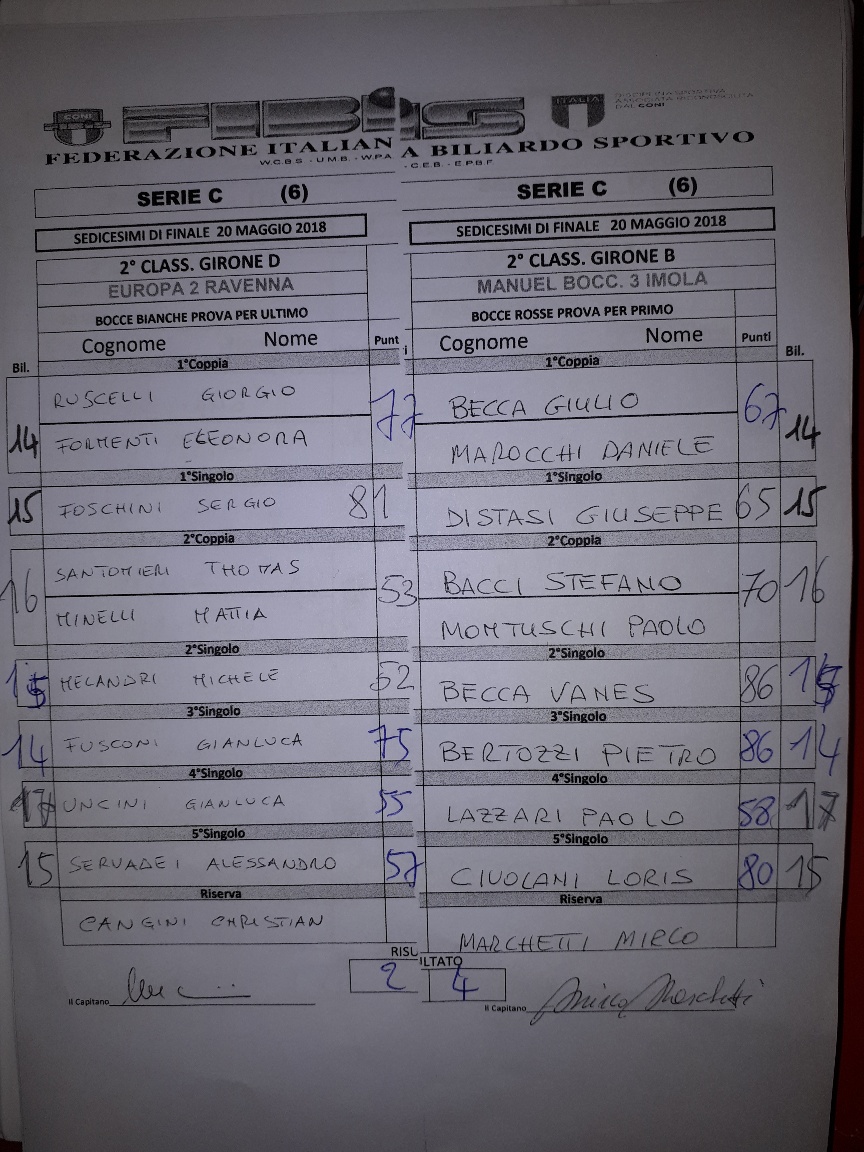 CONI
FIBiS
ITALIA
DISCIPLINA SPORTIVA
ASSOCIATA RICONOSCIUTA
DAL CONI
FEDERAZIONE ITALIANA BILIARDO SPORTIVO
W.C.B.S - U.M.B. - W.P.A - C.E.B. - E.P.B.F
SERIE C (6)
SEDICESIMI DI FINALE 20 MAGGIO 2018
2° CLASS. GIRONE D
EUROPA 2 RAVENNA
BOCCE BIANCHE PROVA PER ULTIMO
Bil. Cognome Nome Punti
1°Coppia
RUSCELLI GIORGIO
14 77
FORMENTI ELEONORA
1°Singolo
15 FOSCHINI SERGIO 81
2°Coppia
SANTOMIERI THOMAS
16 53
MINELLI MATTIA
2°Singolo
15 MELANDRI MICHELE 52
3°Singolo
14 FUSCONI GIANLUCA 75
4°Singolo
17 UNCINI GIANLUCA 55
5°Singolo
15 SERVADEI ALESSANDRO 57
Riserva
CANGINI CHRISTIAN
RISU 2
Il Capitano
SERIE C (6)
SEDICESIMI DI FINALE 20 MAGGIO 2018
2° CLASS. GIRONE B
MANUEL BOCC. 3 IMOLA
BOCCE ROSSE PROVA PER PRIMO
Cognome Nome Punti Bil.
1°Coppia
BECCA GIULIO
67 14
MAROCCHI DANIELE
1°Singolo
DISTASI GIUSEPPE 65 15
2°Coppia
BACCI STEFANO
70 16
MONTUSCHI PAOLO
2°Singolo
BECCA VANES 86 15
3°Singolo
BERTOZZI PIETRO 86 14
4°Singolo
LAZZARI PAOLO 58 17
5°Singolo
CIVOLANI LORIS 80 15
Riserva
MARCHETTI MIRCO
LTATO 4
Il Capitano Mirco Marchetti